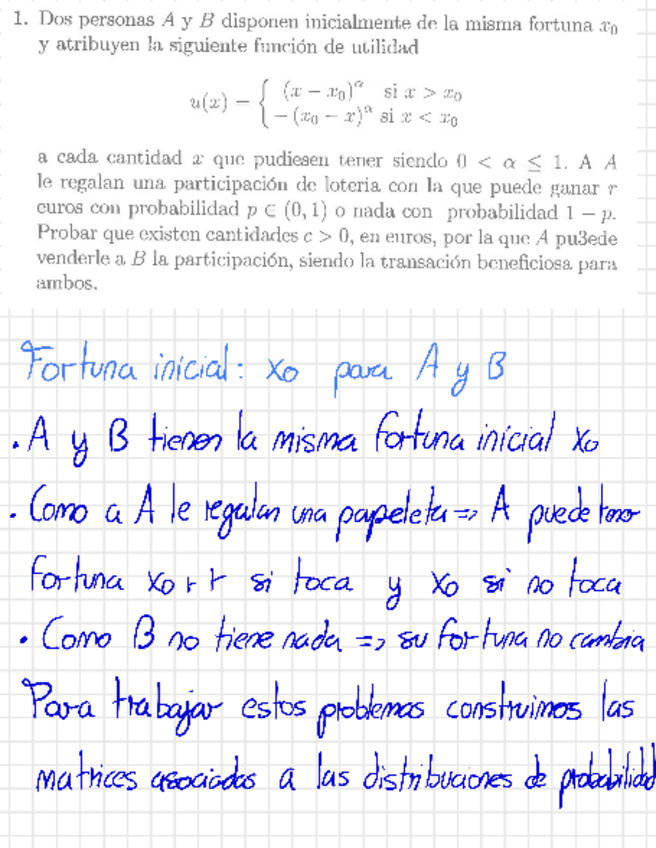 1. Dos personas A y B disponen inicialmente de la misma fortuna x₀
y atribuyen la siguiente función de utilidad
u(x) = { (x − x₀)^α si x > x₀
−(x₀ − x)^α si x < x₀
a cada cantidad x que pudiesen tener siendo 0 < α ≤ 1. A A
le regalan una participación de loteria con la que puede ganar r
euros con probabilidad p ∈ (0, 1) o nada con probabilidad 1 − p.
Probar que existen cantidades c > 0, en euros, por la que A pu3ede
venderle a B la participación, siendo la transación beneficiosa para
ambos.
Fortuna inicial: x₀ para A y B
· A y B tienen la misma fortuna inicial x₀
· Como a A le regalan una papeleta => A puede tener
fortuna x₀ + r si toca y x₀ si no toca
· Como B no tiene nada => su fortuna no cambia
Para trabajar estos problemas construimos las
matrices asociadas a las distribuciones de probabilidad